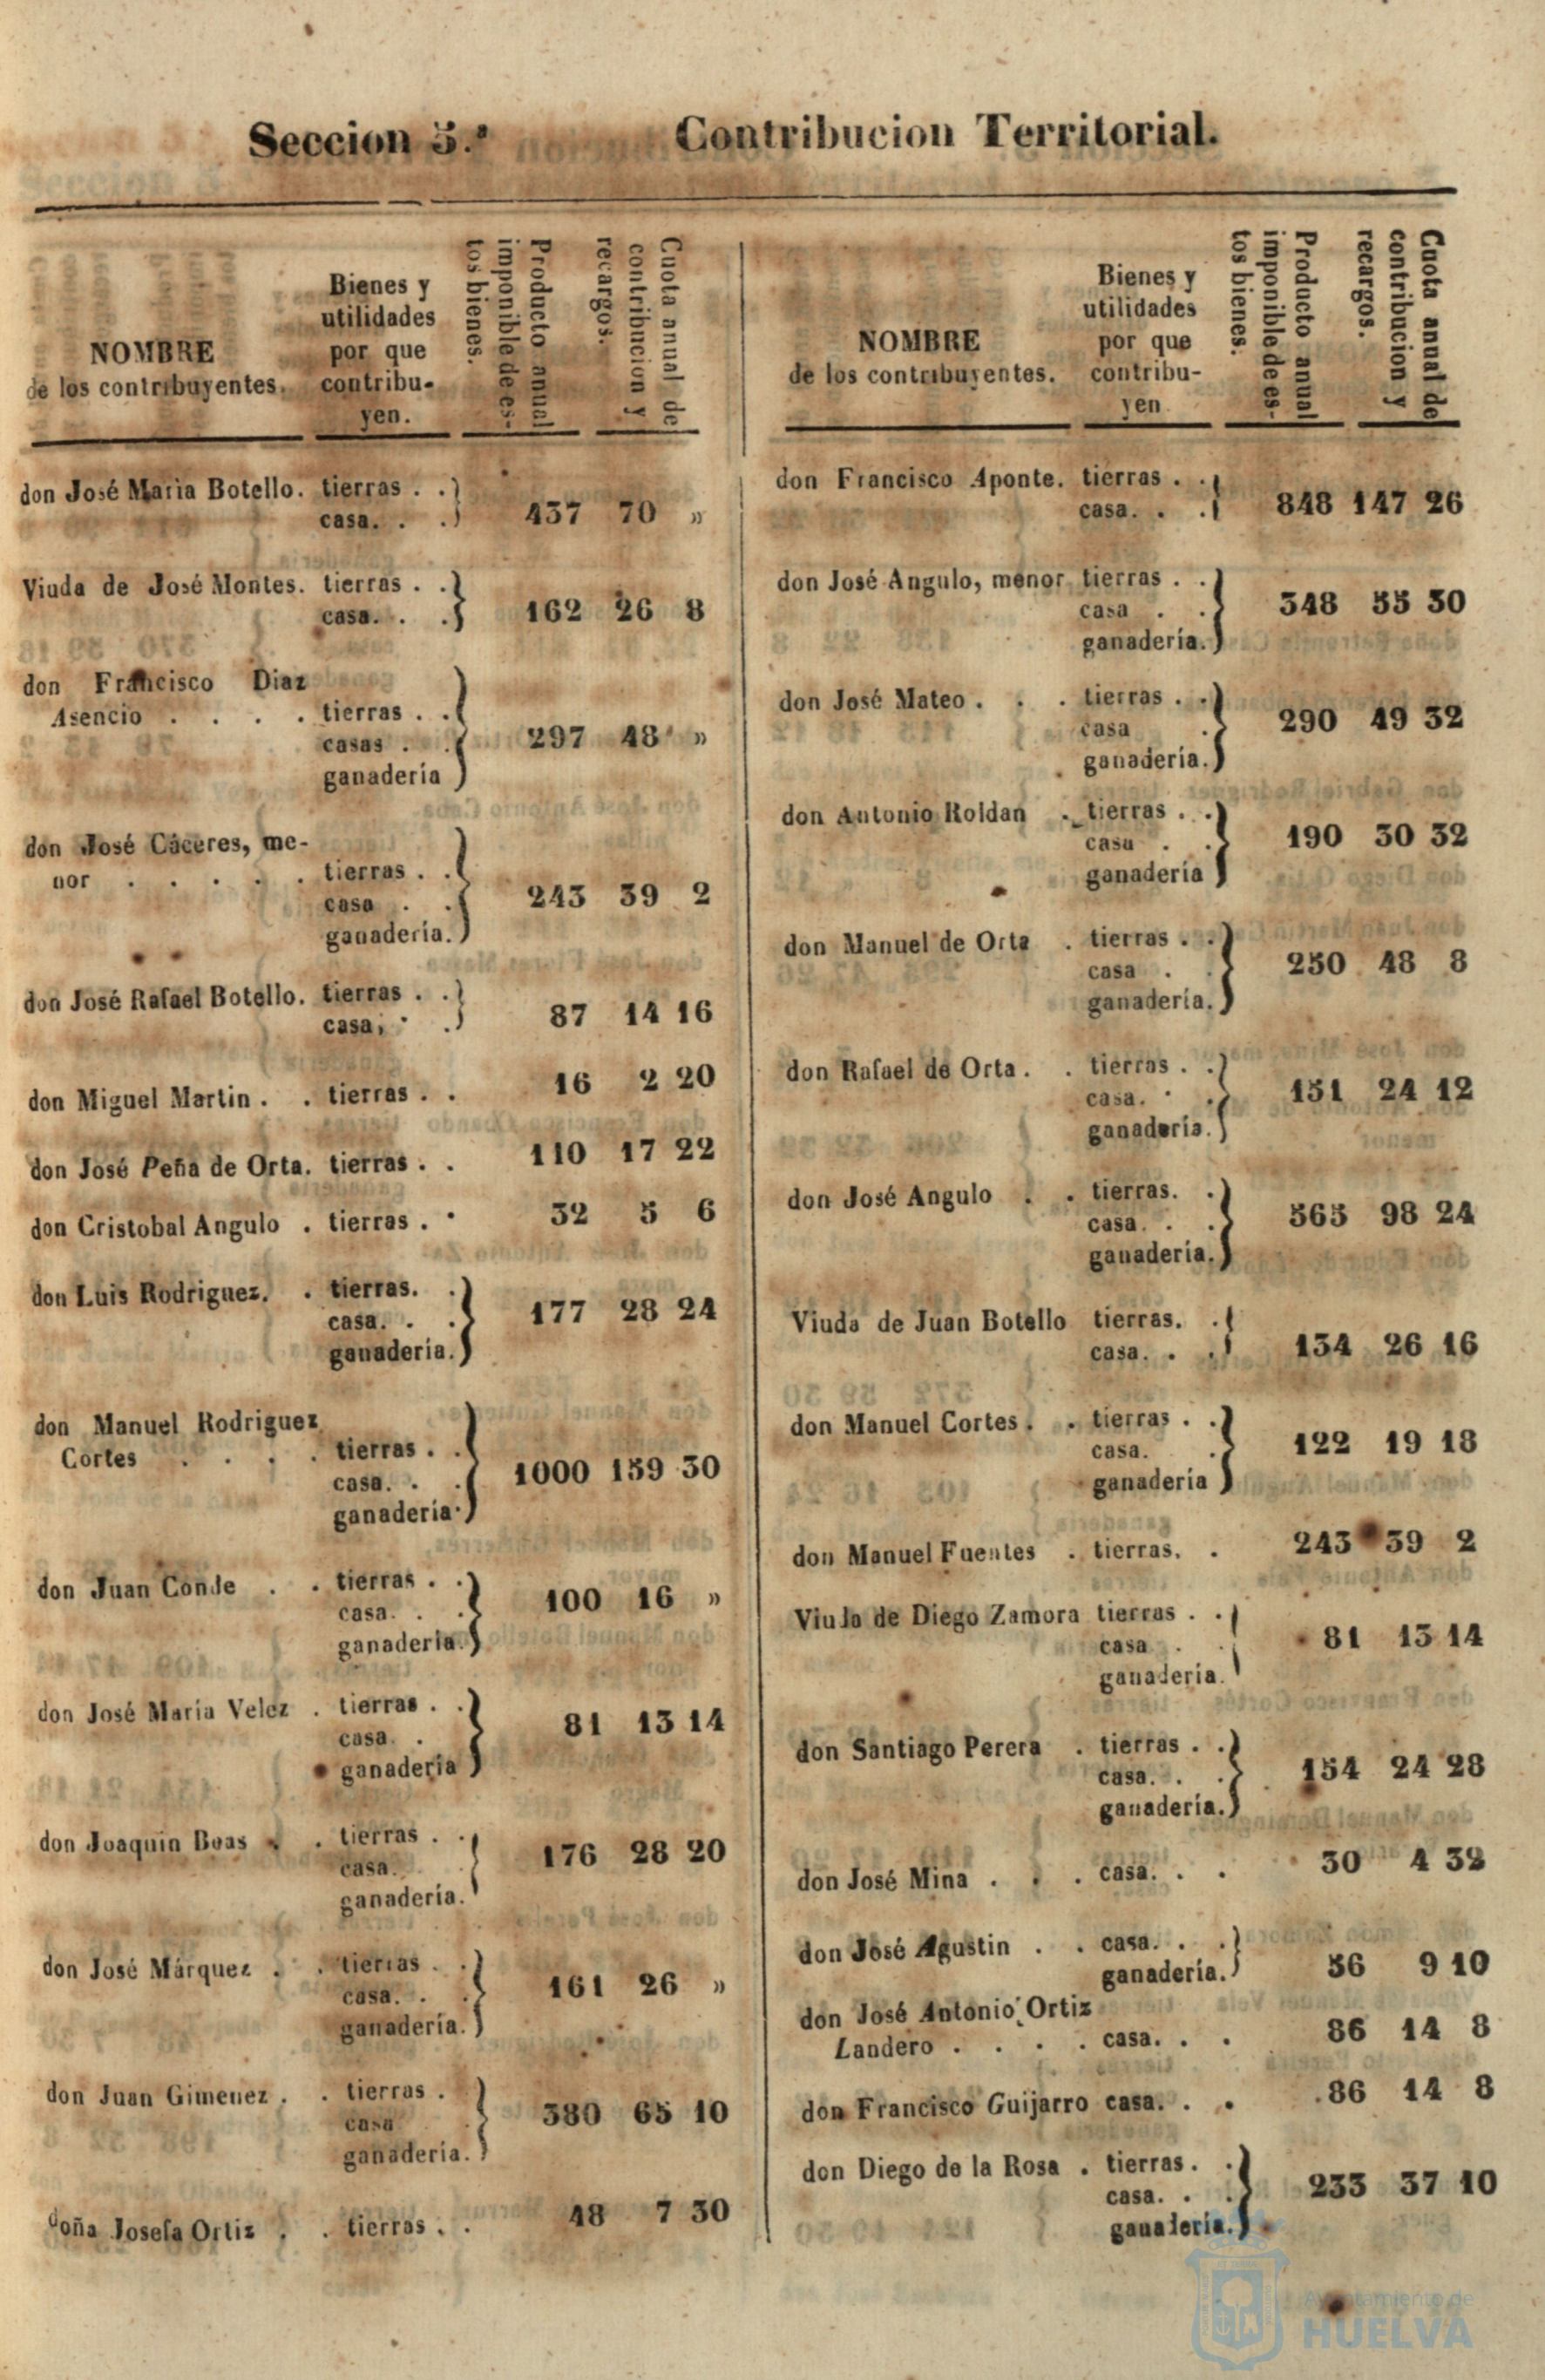 Seccion 5.ª Contribucion Territorial.
NOMBRE
de los contribuyentes.
Bienes y
utilidades
por que
contribu-
yen.
Producto anual
imponible de es-
tos bienes.
Cuota anual de
contribucion y
recargos.
don José Maria Botello. tierras . .
casa. . . 437 70 »
Viuda de José Montes. tierras . .
casa. . . 162 26 8
don Francisco Diaz
Asencio . . . . tierras . .
casas . . 297 48 »
ganaderia
don José Cáceres, me-
nor . . . . . tierras . .
casa . . 243 39 2
ganadería.
don José Rafael Botello. tierras . .
casa, . . 87 14 16
don Miguel Martin . . tierras . . 16 2 20
don José Peña de Orta. tierras . . 110 17 22
don Cristobal Angulo . tierras . . 32 5 6
don Luis Rodriguez. . tierras. .
casa. . . 177 28 24
ganadería.
don Manuel Rodriguez
Cortes . . . . tierras . .
casa. . . 1000 159 30
ganadería.
don Juan Conde . . tierras . .
casa. . . 100 16 »
ganadería.
don José María Velez . tierras . .
casa. . 81 13 14
ganadería
don Joaquin Boas . . tierras . .
casa. . 176 28 20
ganadería.
don José Márquez . . tierras . .
casa. . . 161 26 »
ganadería.
don Juan Gimenez . . tierras .
casa 380 65 10
ganadería.
doña Josefa Ortiz . . tierras . . 48 7 30
NOMBRE
de los contribuyentes.
Bienes y
utilidades
por que
contribu-
yen
Producto anual
imponible de es-
tos bienes.
Cuota anual de
contribucion y
recargos.
don Francisco Aponte. tierras . .
casa. . . 848 147 26
don José Angulo, menor tierras . .
casa . . 348 55 30
ganadería.
don José Mateo . . . tierras . .
casa . 290 49 32
ganadería.
don Antonio Roldan . tierras . .
casa . . 190 30 32
ganadería
don Manuel de Orta . tierras . .
casa . . 250 48 8
ganadería.
don Rafael de Orta . . tierras . .
casa. . . 151 24 12
ganadería.
don José Angulo . . tierras. .
casa. . . 565 98 24
ganadería.
Viuda de Juan Botello tierras. .
casa. . . 134 26 16
don Manuel Cortes . . tierras . .
casa. . 122 19 18
ganadería
don Manuel Fuentes . tierras. . 243 39 2
Viuda de Diego Zamora tierras . .
casa . . 81 13 14
ganadería.
don Santiago Perera . tierras . .
casa. . . 154 24 28
ganadería.
don José Mina . . . casa. . . 30 4 32
don José Agustin . . casa. . .
ganadería. 56 9 10
don José Antonio Ortiz
Landero . . . . casa. . . 86 14 8
don Francisco Guijarro casa. . . 86 14 8
don Diego de la Rosa . tierras. .
casa. . . 233 37 10
ganadería.
Ayuntamiento de
HUELVA